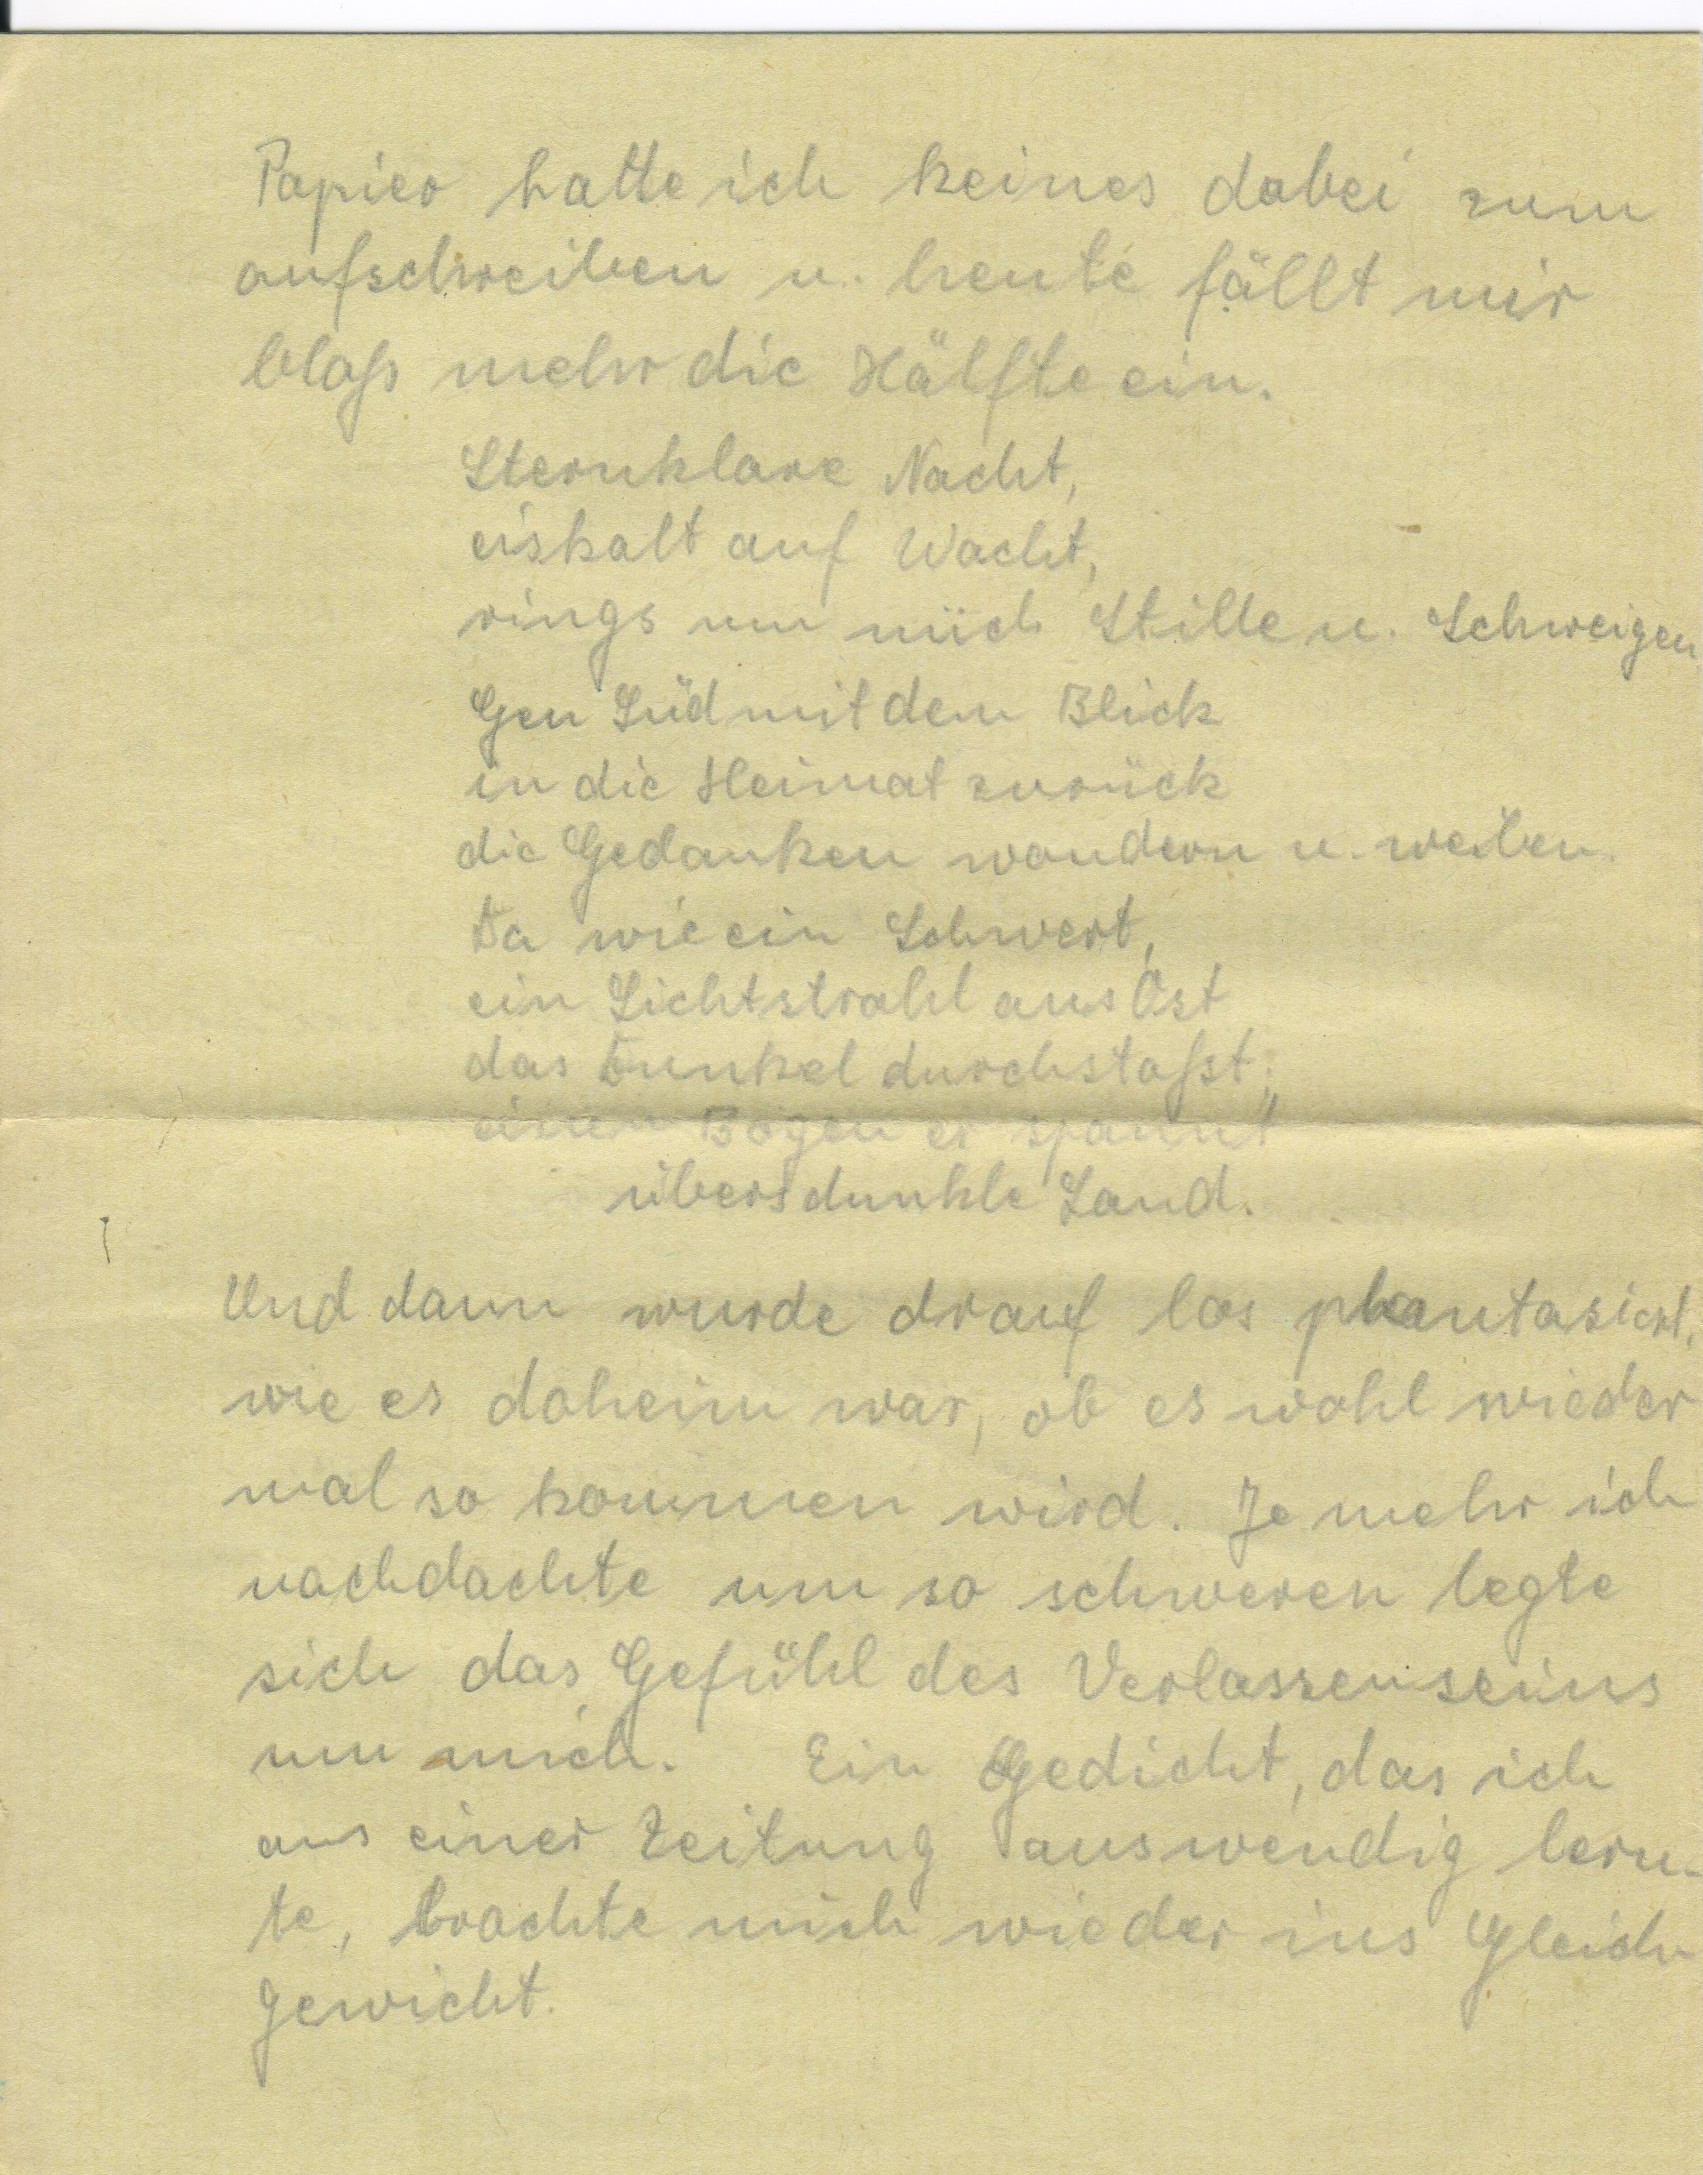 Papier hatte ich keines dabei zum
aufschreiben u. heute fällt mir
bloß mehr die Hälfte ein.
Sternklare Nacht,
eiskalt auf Wacht,
rings um mich Stille u. Schweigen
Gen Süd mit dem Blick
in die Heimat zurück
die Gedanken wandern u. weilen.
Da wie ein Schwert,
ein Lichtstrahl aus Ost
das Dunkel durchstoßt;
einen Bogen er spannt
übers dunkle Land.
Und dann wurde drauf los phantasiert,
wie es daheim war, ob es wohl wieder
mal so kommen wird. Je mehr ich
nachdachte um so schweren legte
sich das Gefühl des Verlassenseins
um mich. Ein Gedicht, das ich
aus einer Zeitung auswendig lern-
te, brachte mich wieder ins Gleich
gewicht.